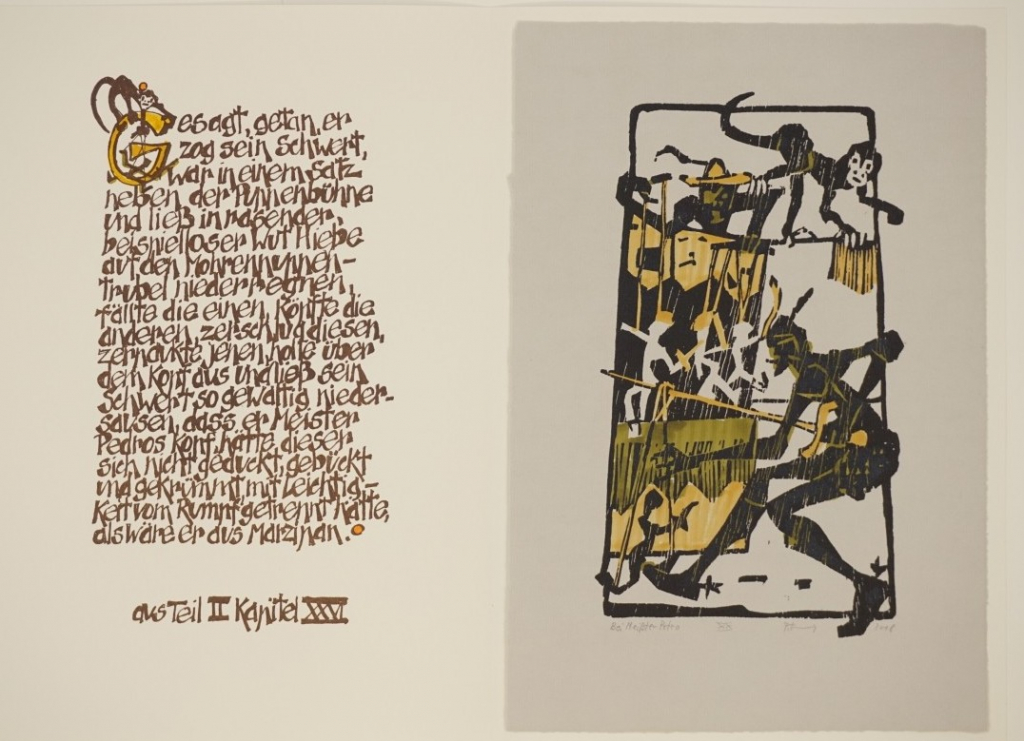 Gesagt, getan, er
zog sein Schwert,
war in einem Satz
neben der Puppenbühne
und ließ in rasender,
beispielloser Wut Hiebe
auf den Mohrenpuppen-
trubel niederregnen,
fällte die einen, köpfte die
anderen, zerschlug diesen,
zerhackte jenen, holte über
dem Kopf aus und ließ sein
Schwert so gewaltig nieder-
sausen, dass er Meister
Pedros Kopf, hätte dieser
sich nicht geduckt, gebückt
und gekrümmt, mit Leichtig-
keit vom Rumpf getrennt hätte,
als wäre er aus Marzipan.
aus Teil II Kapitel XXVI
Bei Meister Pedro